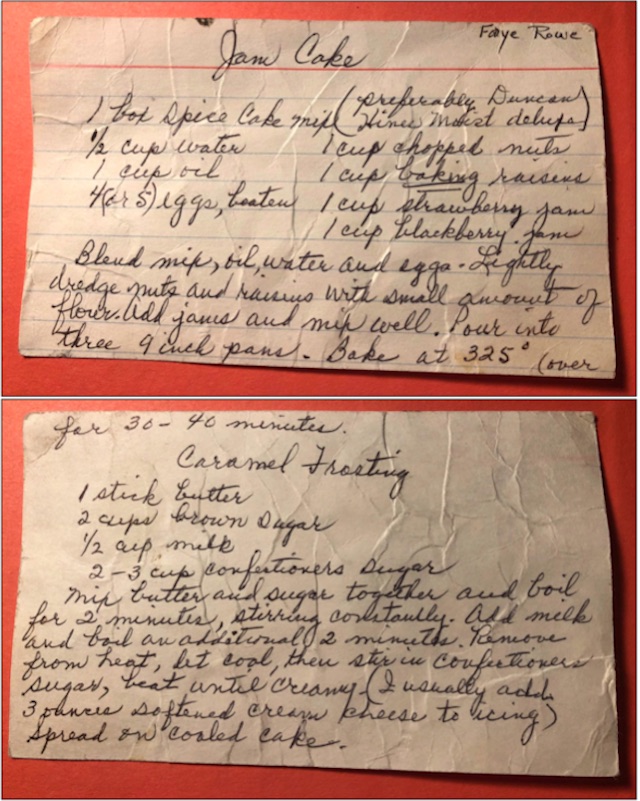 Faye Rowe
Jam Cake
1 box Spice Cake mix (preferably Duncan
Hines Moist deluxe)
1/2 cup water 1 cup chopped nuts
1 cup oil 1 cup baking raisins
4(or 5) eggs, beaten 1 cup strawberry jam
1 cup blackberry jam
Blend mix, oil, water and eggs - Lightly
dredge nuts and raisins with small amount of
flour. Add jams and mix well. Pour into
three 9 inch pans - Bake at 325° (over
for 30-40 minutes.
Caramel Frosting
1 stick butter
2 cups brown sugar
1/2 cup milk
2-3 cup confectioners sugar
Mix butter and sugar together and boil
for 2 minutes, stirring constantly. Add milk
and boil an additional 2 minutes. Remove
from heat, let cool, then stir in confectioners
sugar, beat until creamy. (I usually add
3 ounces softened cream cheese to icing)
Spread on cooled cake.